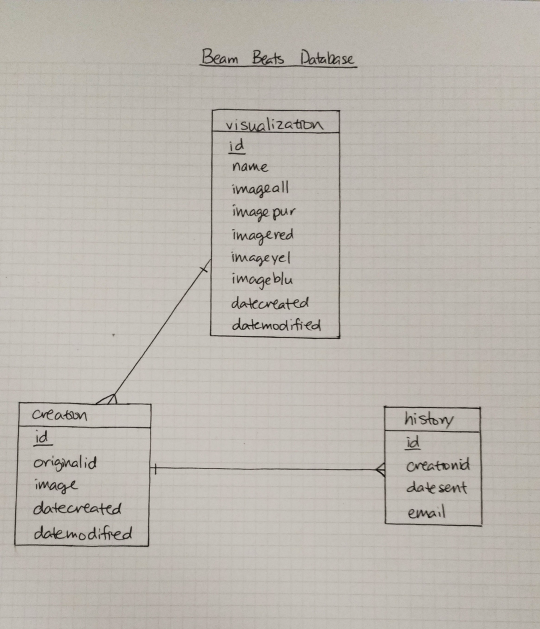 Beam Beats Database
visualization
id
name
imageall
imagepur
imagered
imageyel
imageblu
datecreated
datemodified
creation
id
originalid
image
datecreated
datemodified
history
id
creationid
datesent
email